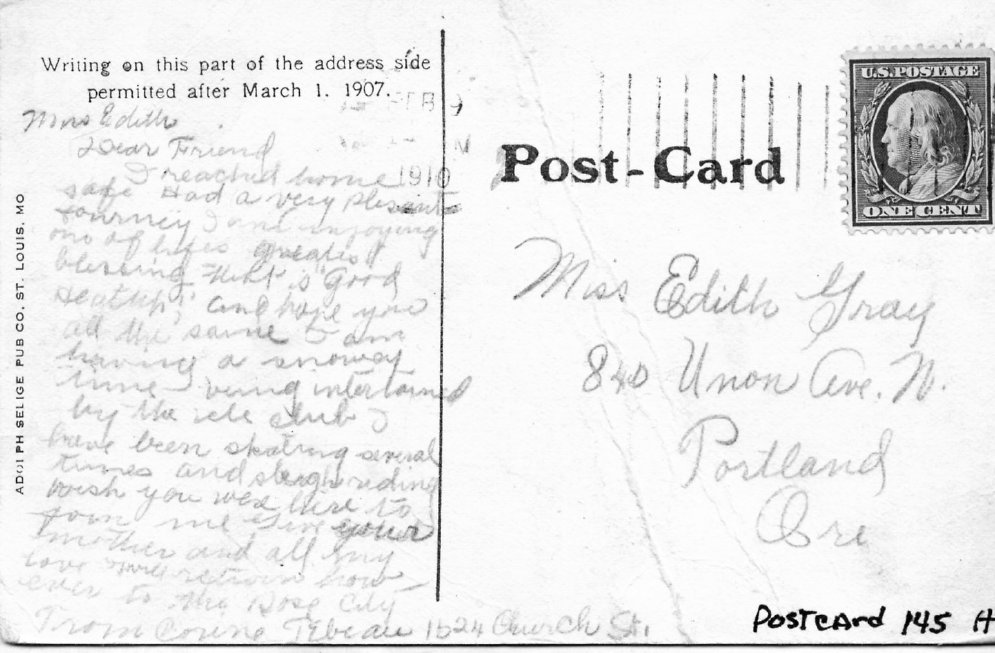 Writing on this part of the address side
permitted after March 1. 1907.
Miss Edith
Dear Friend
I reached home
safe Had a very plesant
journey I am injoying
one of lifes greatest
blessing that is "Good
Health", and hope you
all the same I am
having a snowey
time being intertained
by the club I
have been skating several
times and sleigh riding
wish you were here to
join me Give your
mother and all my
love return how-
ever to the Rose City
From Corine Tebeau 1524 Church St.
ADOLPH SELIGE PUB CO. ST. LOUIS, MO
FEB 9
1910
Post-Card
U.S. POSTAGE
ONE CENT
Miss Edith Gray
840 Union Ave. N.
Portland
Ore
Postcard 145 H